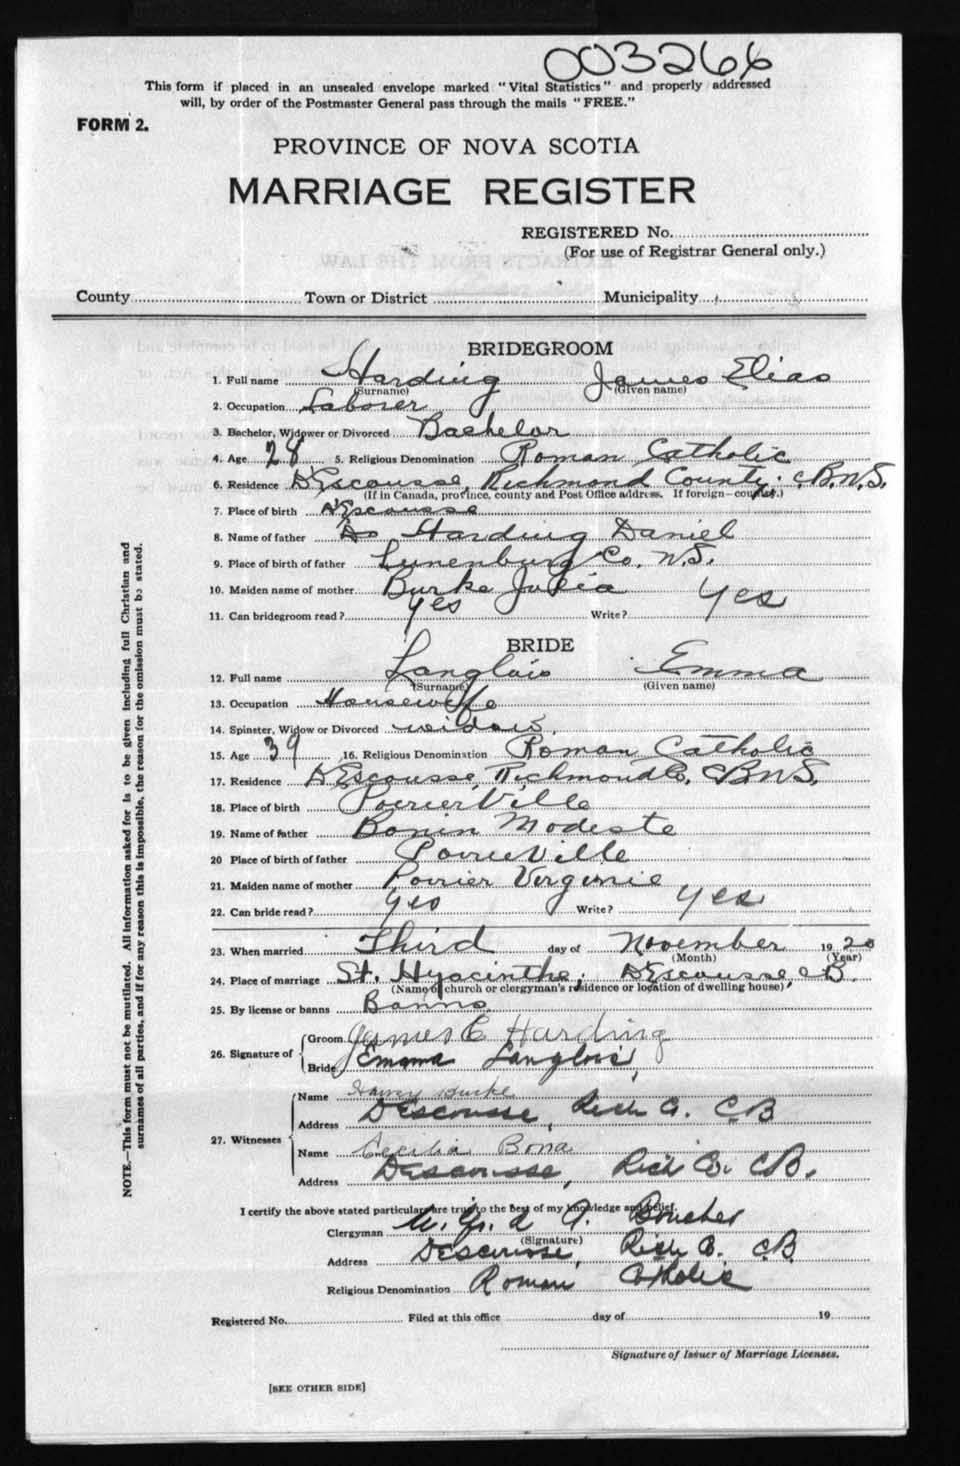 003266
This form if placed in an unsealed envelope marked "Vital Statistics" and properly addressed
will, by order of the Postmaster General pass through the mails "FREE."
FORM 2.
PROVINCE OF NOVA SCOTIA
MARRIAGE REGISTER
REGISTERED No.
(For use of Registrar General only.)
County Town or District Municipality
BRIDEGROOM
1. Full name Harding James Elias
(Surname) (Given name)
2. Occupation Laborer
3. Bachelor, Widower or Divorced Bachelor
4. Age 28 5. Religious Denomination Roman Catholic
6. Residence D'Escousse, Richmond County. C.B.N.S.
(If in Canada, province, county and Post Office address. If foreign—country.)
7. Place of birth D'Escousse
8. Name of father Do Harding Daniel
9. Place of birth of father Lunenburg Co. N.S.
10. Maiden name of mother Burke Julia
11. Can bridegroom read? Yes Write? Yes
BRIDE
12. Full name Langlois Emma
(Surname) (Given name)
13. Occupation Housewife
14. Spinster, Widow or Divorced widow.
15. Age 39 16. Religious Denomination Roman Catholic
17. Residence D'Escousse, Richmond Co. CB N.S.
18. Place of birth PoirierVille
19. Name of father Bonin Modeste
20 Place of birth of father PoirierVille
21. Maiden name of mother Poirier Virginie
22. Can bride read? Yes Write? Yes
23. When married Third day of November 1920
(Month) (Year)
24. Place of marriage St. Hyacinthe, D'Escousse C.B.
(Name of church or clergyman's residence or location of dwelling house)
25. By license or banns Banns
26. Signature of
Groom James E Harding
Bride Emma Langlois
27. Witnesses
Name Harry Burke
Address Descousse, Rich Co. C.B
Name Cecilia Bona
Address Descousse, Rich Co. C.B.
I certify the above stated particulars are true to the best of my knowledge and belief.
Clergyman A. Boucher
(Signature)
Address Descousse, Rich Co. C.B
Religious Denomination Roman Catholic
Registered No. Filed at this office day of 19
Signature of Issuer of Marriage Licenses.
[SEE OTHER SIDE]
NOTE.—This form must not be mutilated. All information asked for is to be given including full Christian and
surnames of all parties, and if for any reason this is impossible, the reason for the omission must be stated.